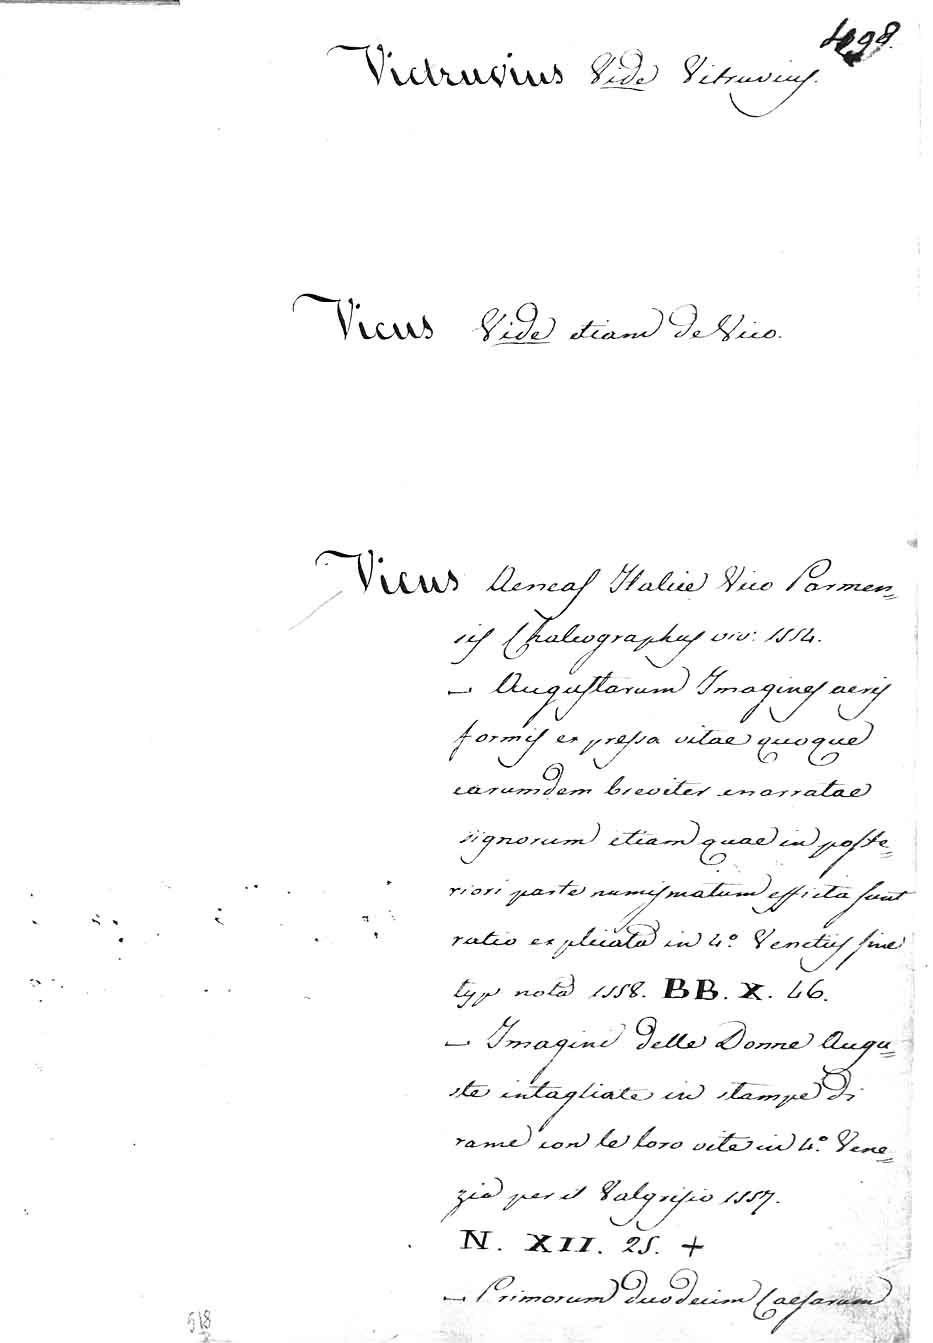 498.
Victruvius Vide Vitruvius.
Vicus Vide etiam de Vico.
Vicus Aeneas Italice Vico Parmen=
sis Chalcographus viv: 1554.
— Augustarum Imagines aeris
formis expressa vitae quoque
earumdem breviter enarratae
signorum etiam quae in poste=
riori parte numismatum efficta sunt
ratio explicata in 4.° Venetiis sine
typ nota 1558. BB. X. 46.
— Imagini delle Donne Augu=
ste intagliate in stampe di
rame con le loro vite in 4.° Vene=
zia per il Valgrisio 1557.
N. XII. 25. +
— Primorum duodecim Caesarum
518